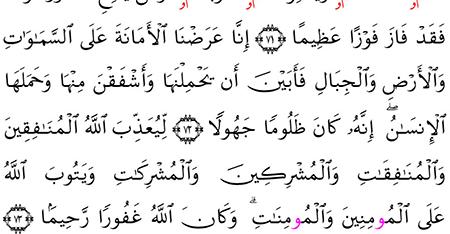 فَقَدْ فَازَ فَوْزًا عَظِيمًا ﴿٧١﴾ إِنَّا عَرَضْنَا الْأَمَانَةَ عَلَى السَّمَاوَاتِ
وَالْأَرْضِ وَالْجِبَالِ فَأَبَيْنَ أَن يَحْمِلْنَهَا وَأَشْفَقْنَ مِنْهَا وَحَمَلَهَا
الْإِنسَانُ ۖ إِنَّهُۥ كَانَ ظَلُومًا جَهُولًا ﴿٧٢﴾ لِّيُعَذِّبَ اللَّهُ الْمُنَافِقِينَ
وَالْمُنَافِقَاتِ وَالْمُشْرِكِينَ وَالْمُشْرِكَاتِ وَيَتُوبَ اللَّهُ
عَلَى الْمُومِنِينَ وَالْمُومِنَاتِ ۗ وَكَانَ اللَّهُ غَفُورًا رَّحِيمًا ﴿٧٣﴾